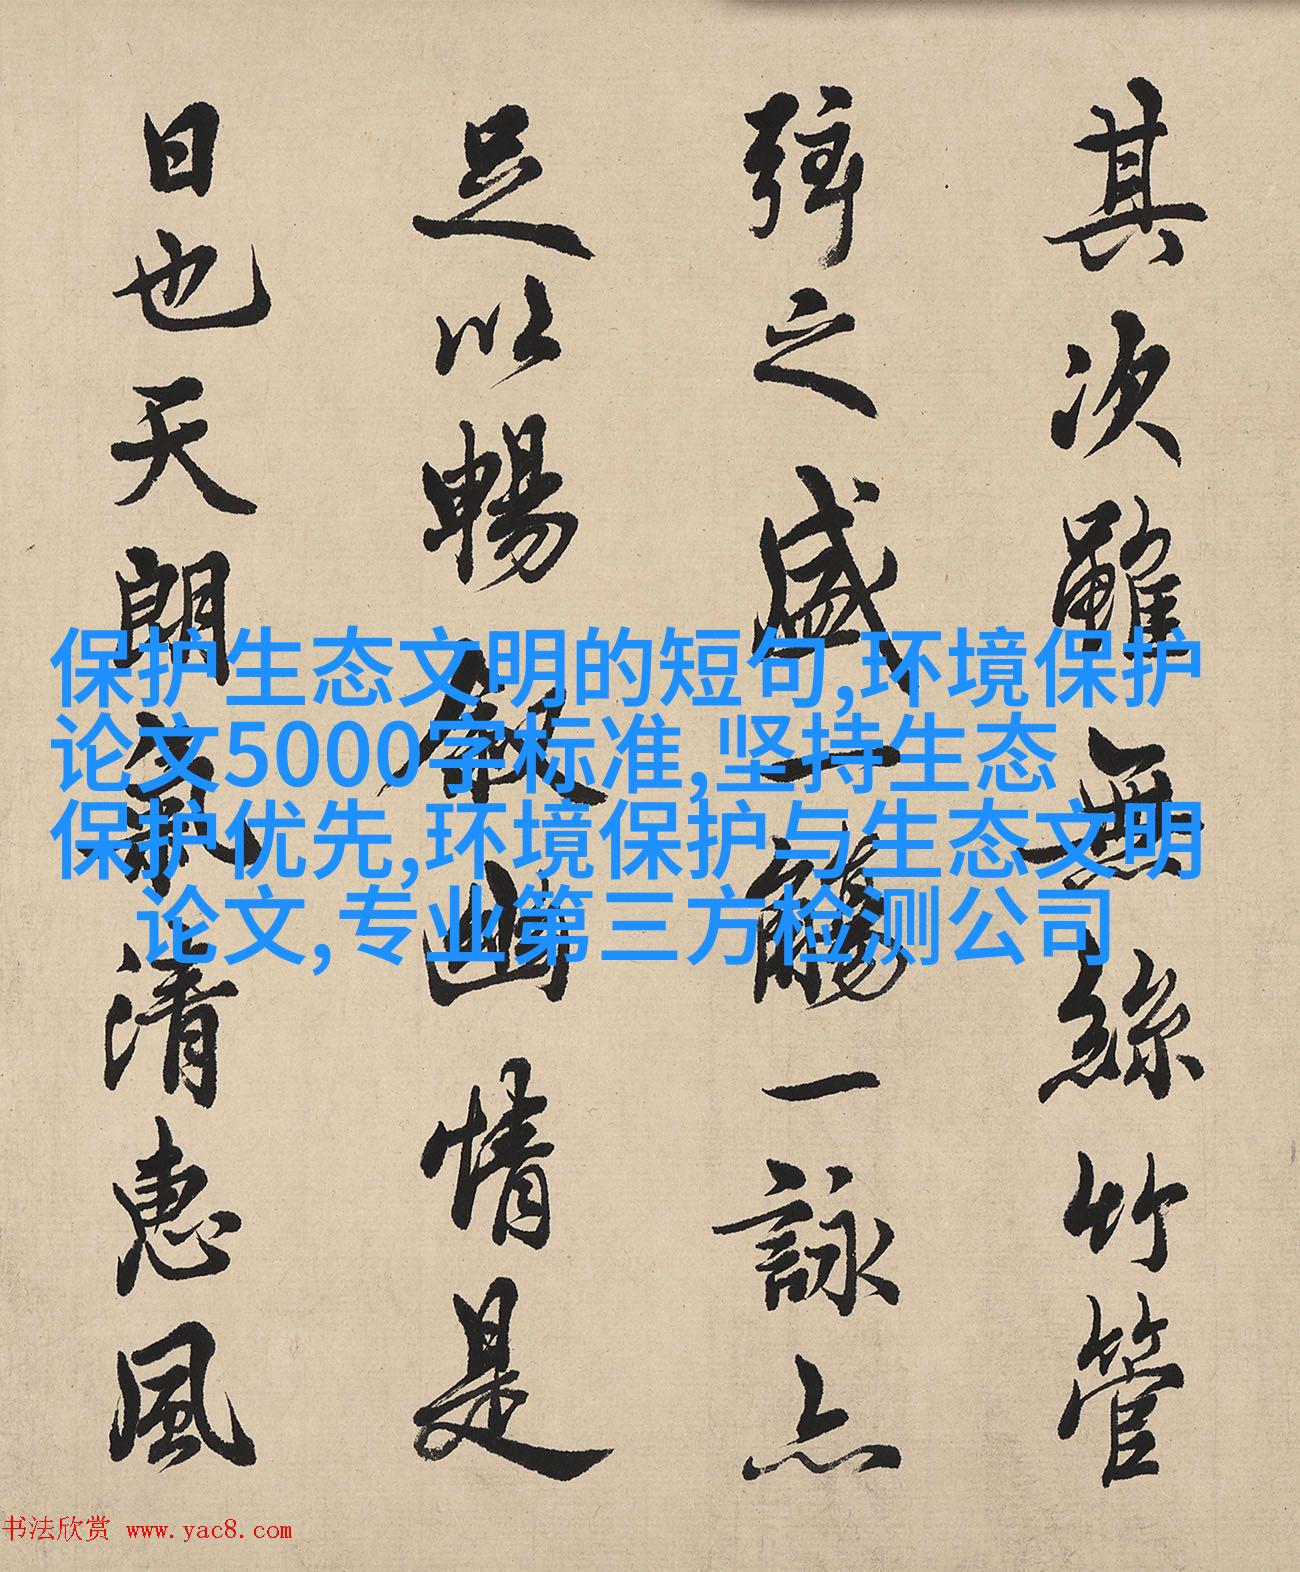 其次雖無絲竹管
弦之盛一觴一詠亦
足以暢叙幽情是
日也天朗氣清惠風
保护生态文明的短句,环境保护
论文5000字标准,坚持生态
保护优先,环境保护与生态文明
论文,专业第三方检测公司
书法欣赏 www.yac8.com